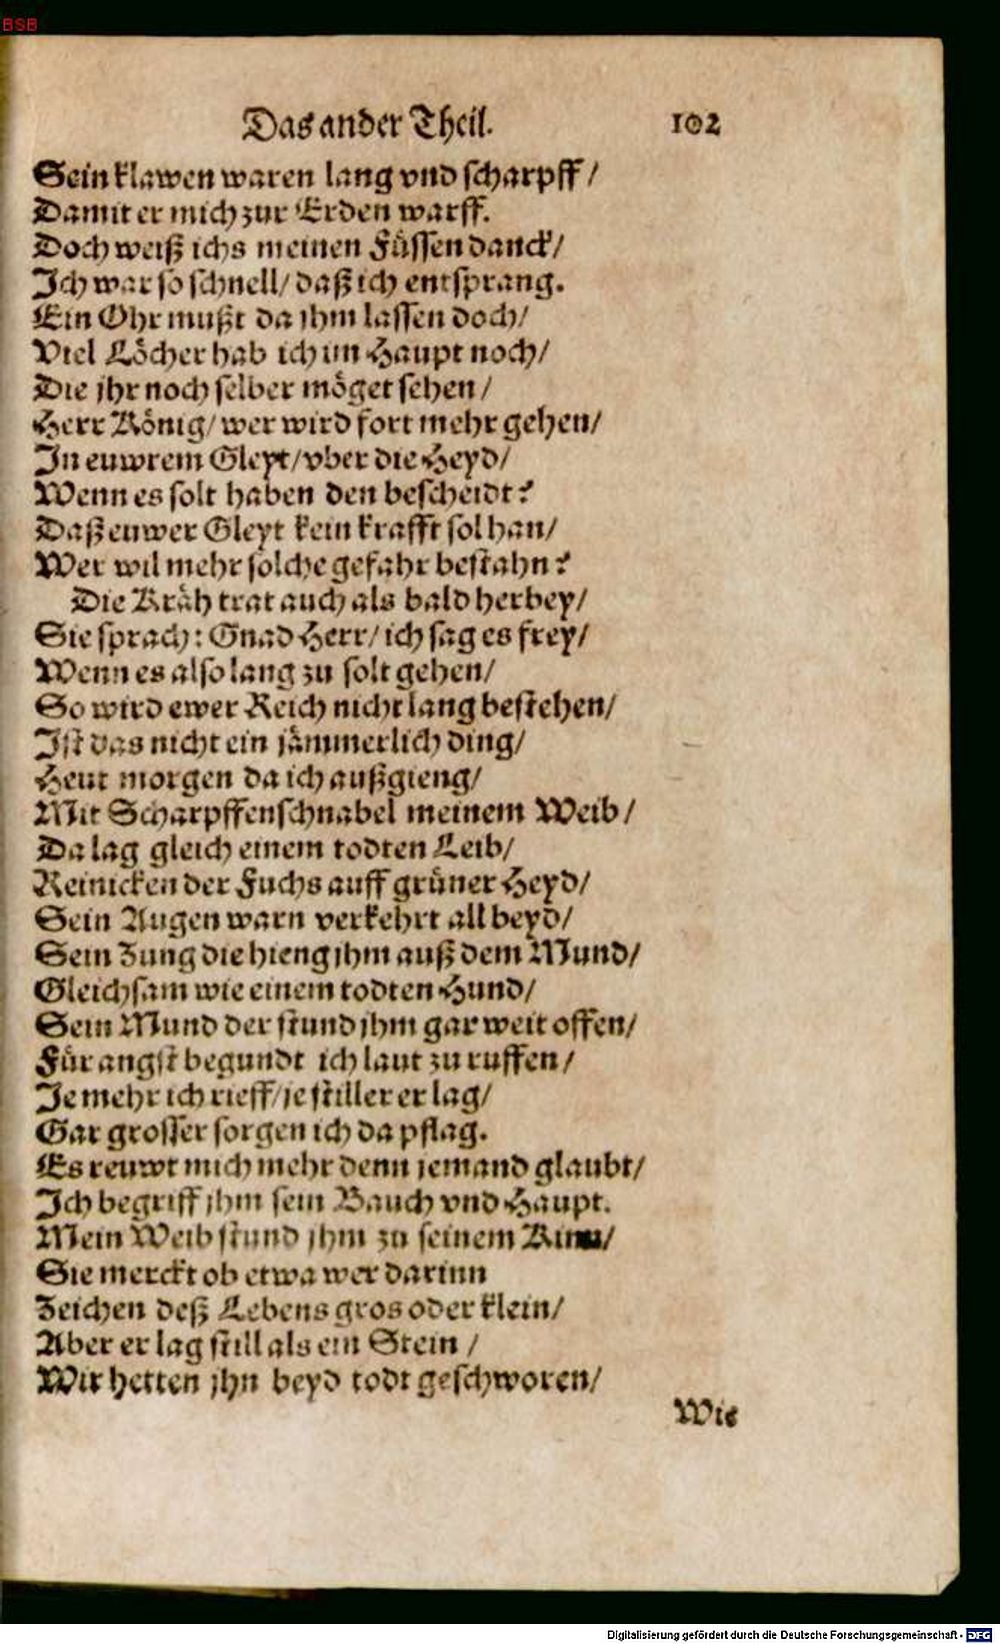 BSB
Das ander Theil. 102
Sein klawen waren lang vnd scharpff /
Damit er mich zur Erden warff.
Doch weiß ichs meinen Füssen danck/
Ich war so schnell/ daß ich entsprang.
Ein Ohr mußt da jhm lassen doch/
Viel Löcher hab ich im Haupt noch/
Die jhr noch selber möget sehen /
Herr König/ wer wird fort mehr gehen/
In euwrem Gleyt/ vber die Heyd/
Wenn es solt haben den bescheidt?
Daß euwer Gleyt kein krafft sol han/
Wer wil mehr solche gefahr bestahn?
Die Kräh trat auch als bald herbey/
Sie sprach: Gnad Herr/ ich sag es frey/
Wenn es also lang zu solt gehen/
So wird ewer Reich nicht lang bestehen/
Ist das nicht ein jämmerlich ding/
Heut morgen da ich außgieng/
Mit Scharpffenschnabel meinem Weib /
Da lag gleich einem todten Leib/
Reinicken der Fuchs auff grüner Heyd/
Sein Augen warn verkehrt all beyd/
Sein Zung die hieng jhm auß dem Mund/
Gleichsam wie einem todten Hund/
Sein Mund der stund jhm gar weit offen/
Für angst begundt ich laut zu ruffen/
Je mehr ich rieff/ je stiller er lag/
Gar grosser sorgen ich da pflag.
Es reuwt mich mehr denn jemand glaubt/
Ich begriff jhm sein Bauch vnd Haupt.
Mein Weib stund jhm zu seinem Kinn/
Sie merckt ob etwa wer darinn
Zeichen deß Lebens gros oder klein/
Aber er lag still als ein Stein /
Wir hetten jhn beyd todt geschworen/
Wie
Digitalisierung gefördert durch die Deutsche Forschungsgemeinschaft - DFG